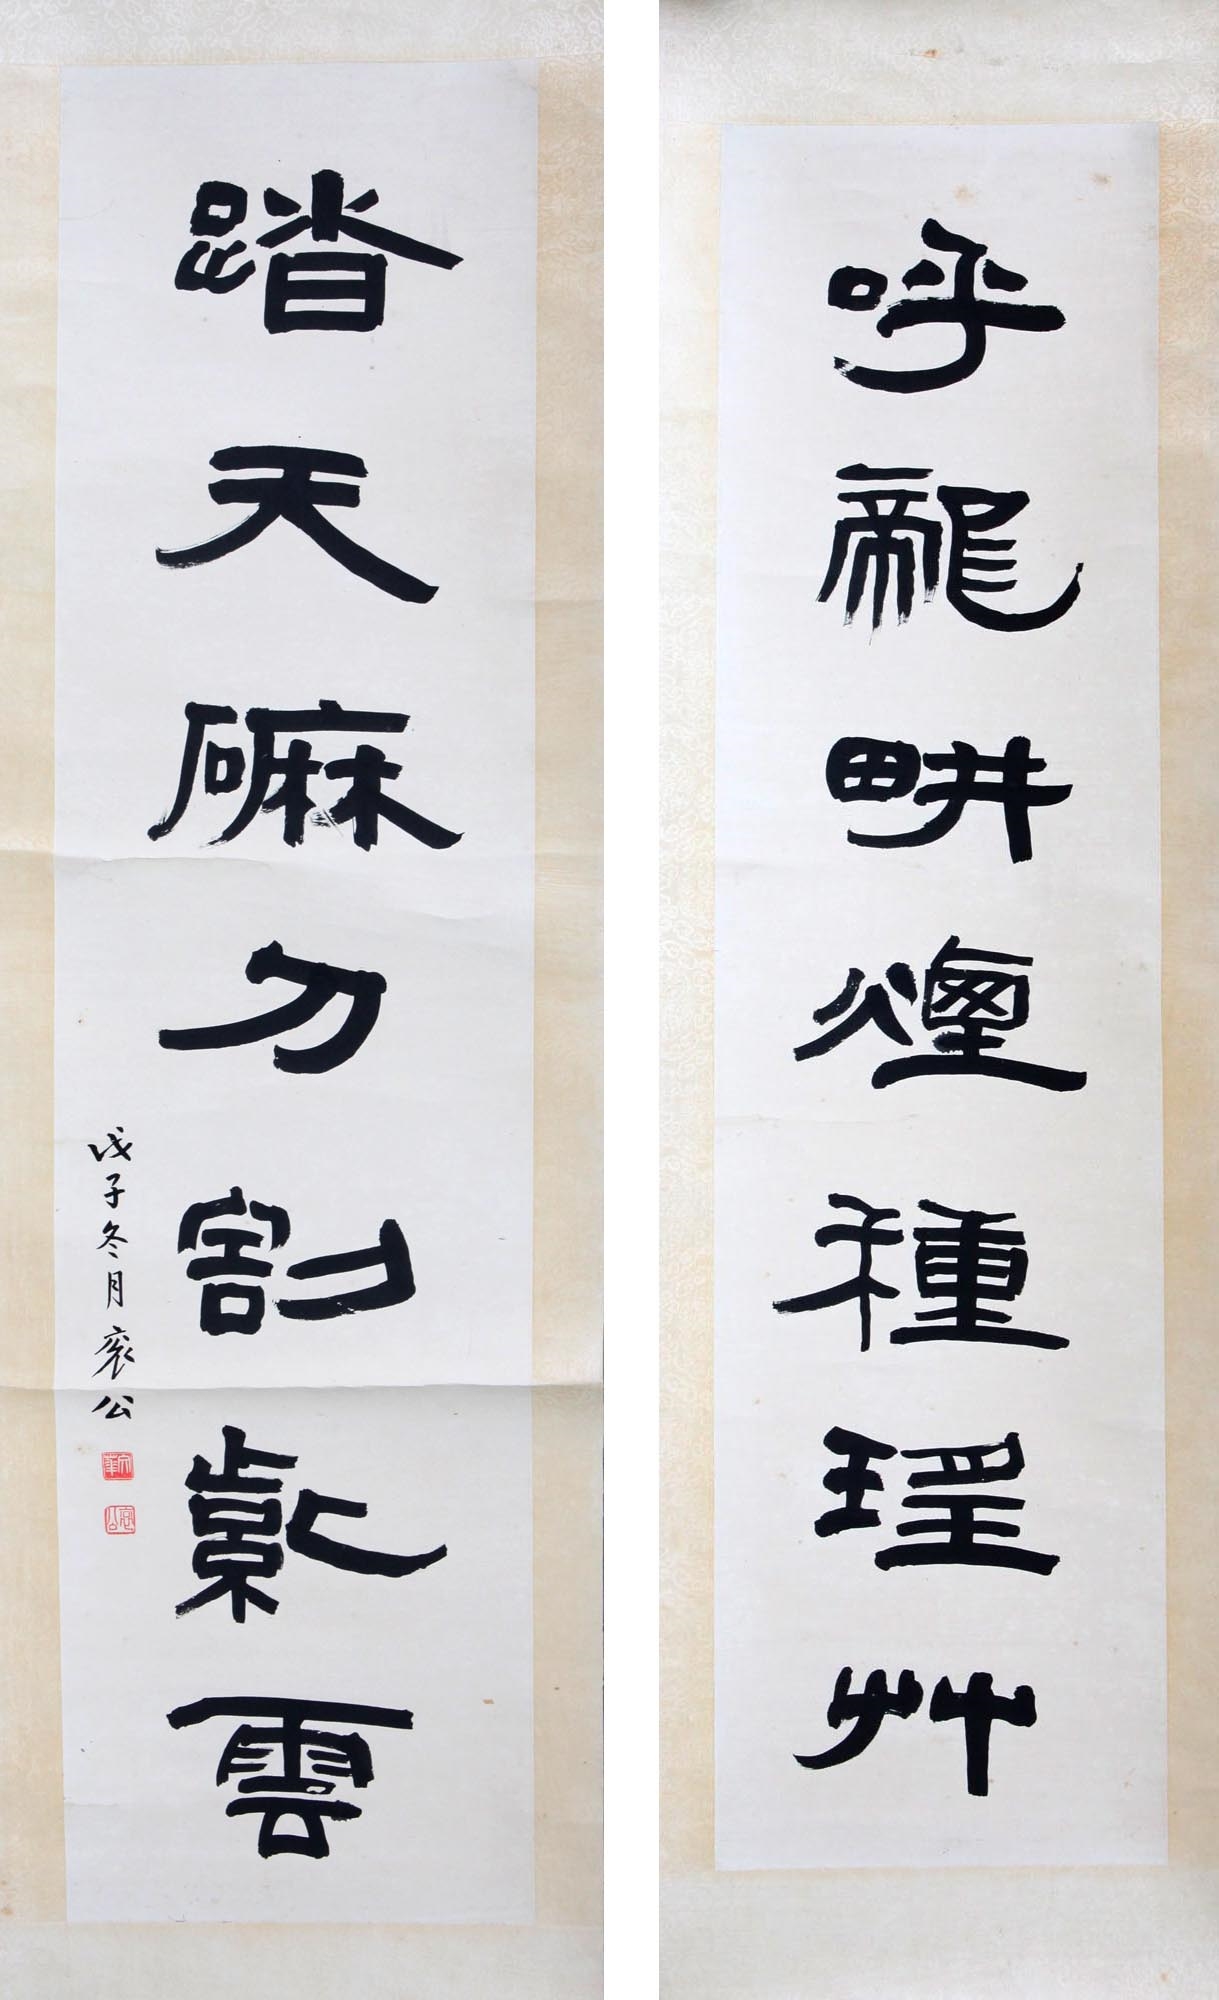 呼龍畊煙種瑤艸
踏天磨刀割紫雲
戊子冬月公